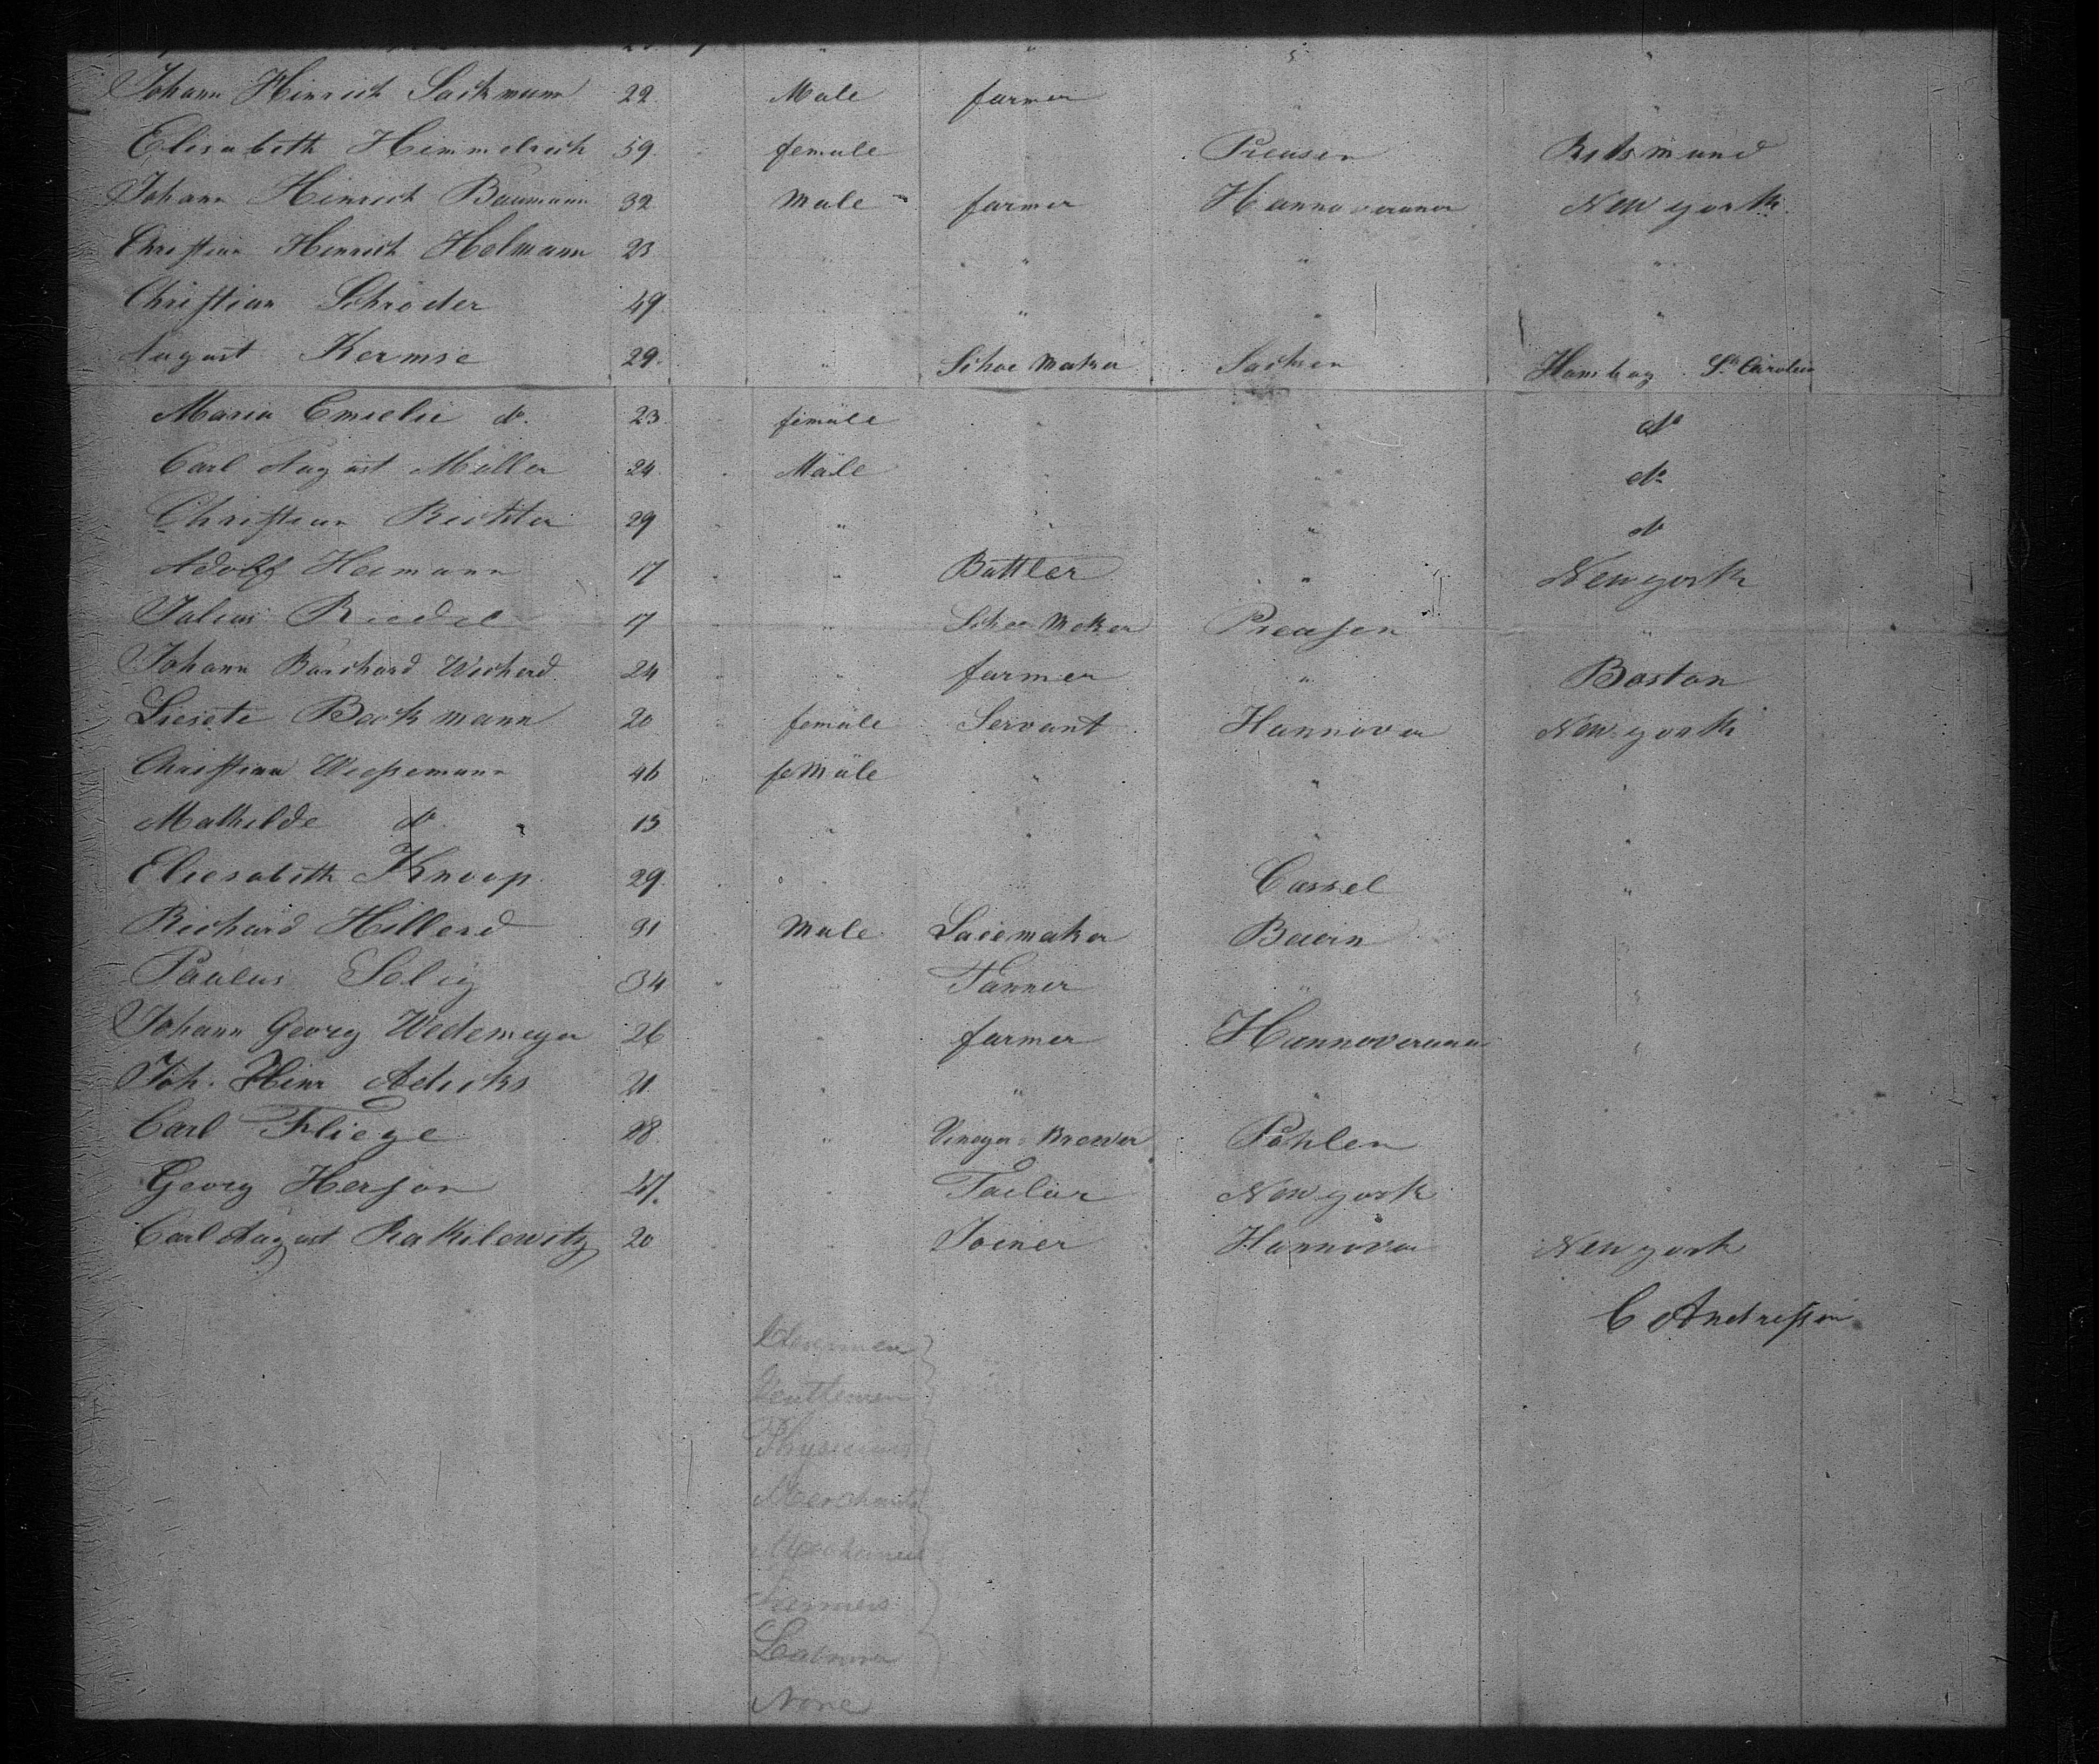 Johann Hinrich Sackmann 22 Male farmer " "
Elisabeth Himmelreich 59 female Preusen
Johann Hinrich Baumann 32 Male farmer Hannoveraner New york
Christian Hinrich Holmann 23 " " " "
Christian Schröder 49 " " " "
August Kermse 29 " Schoe Maker Sachsen Hamburg Sh Carolin
Maria Emielie do. 23 female " " do
Carl August Müller 24 Male " " do
Christian Richter 29 " " " do
Adolf Heimann 17 " Buttler " New york
Julius Riedel 17 " Schoe Maker Preusen "
Johann Borchard Wichard 24 " farmer " Boston
Liesete Bockmann 20 female Servant Hannover New york
Christian Wessemann 46 female " " "
Mathilde do 13 " " " "
Eliesabeth Knoop 29 " Cassel "
Richard Hillerd 31 Male Lacemaker Baiern "
Paulus Selig 34 " Tanner " "
Johann Georg Wedemeyer 26 " farmer Hannoveraner "
Joh. Hinr Adicks 21 " " "
Carl Fliege 28 " Vinegar Brewer Pohlen
Georg Herson 47. " Tailor New york
Carl August Rakilewitz 20 " Joiner Hannover New york
C Andressen
Gentlemen
Physicians
Merchants
Mechanics
Farmers
Labourer
None